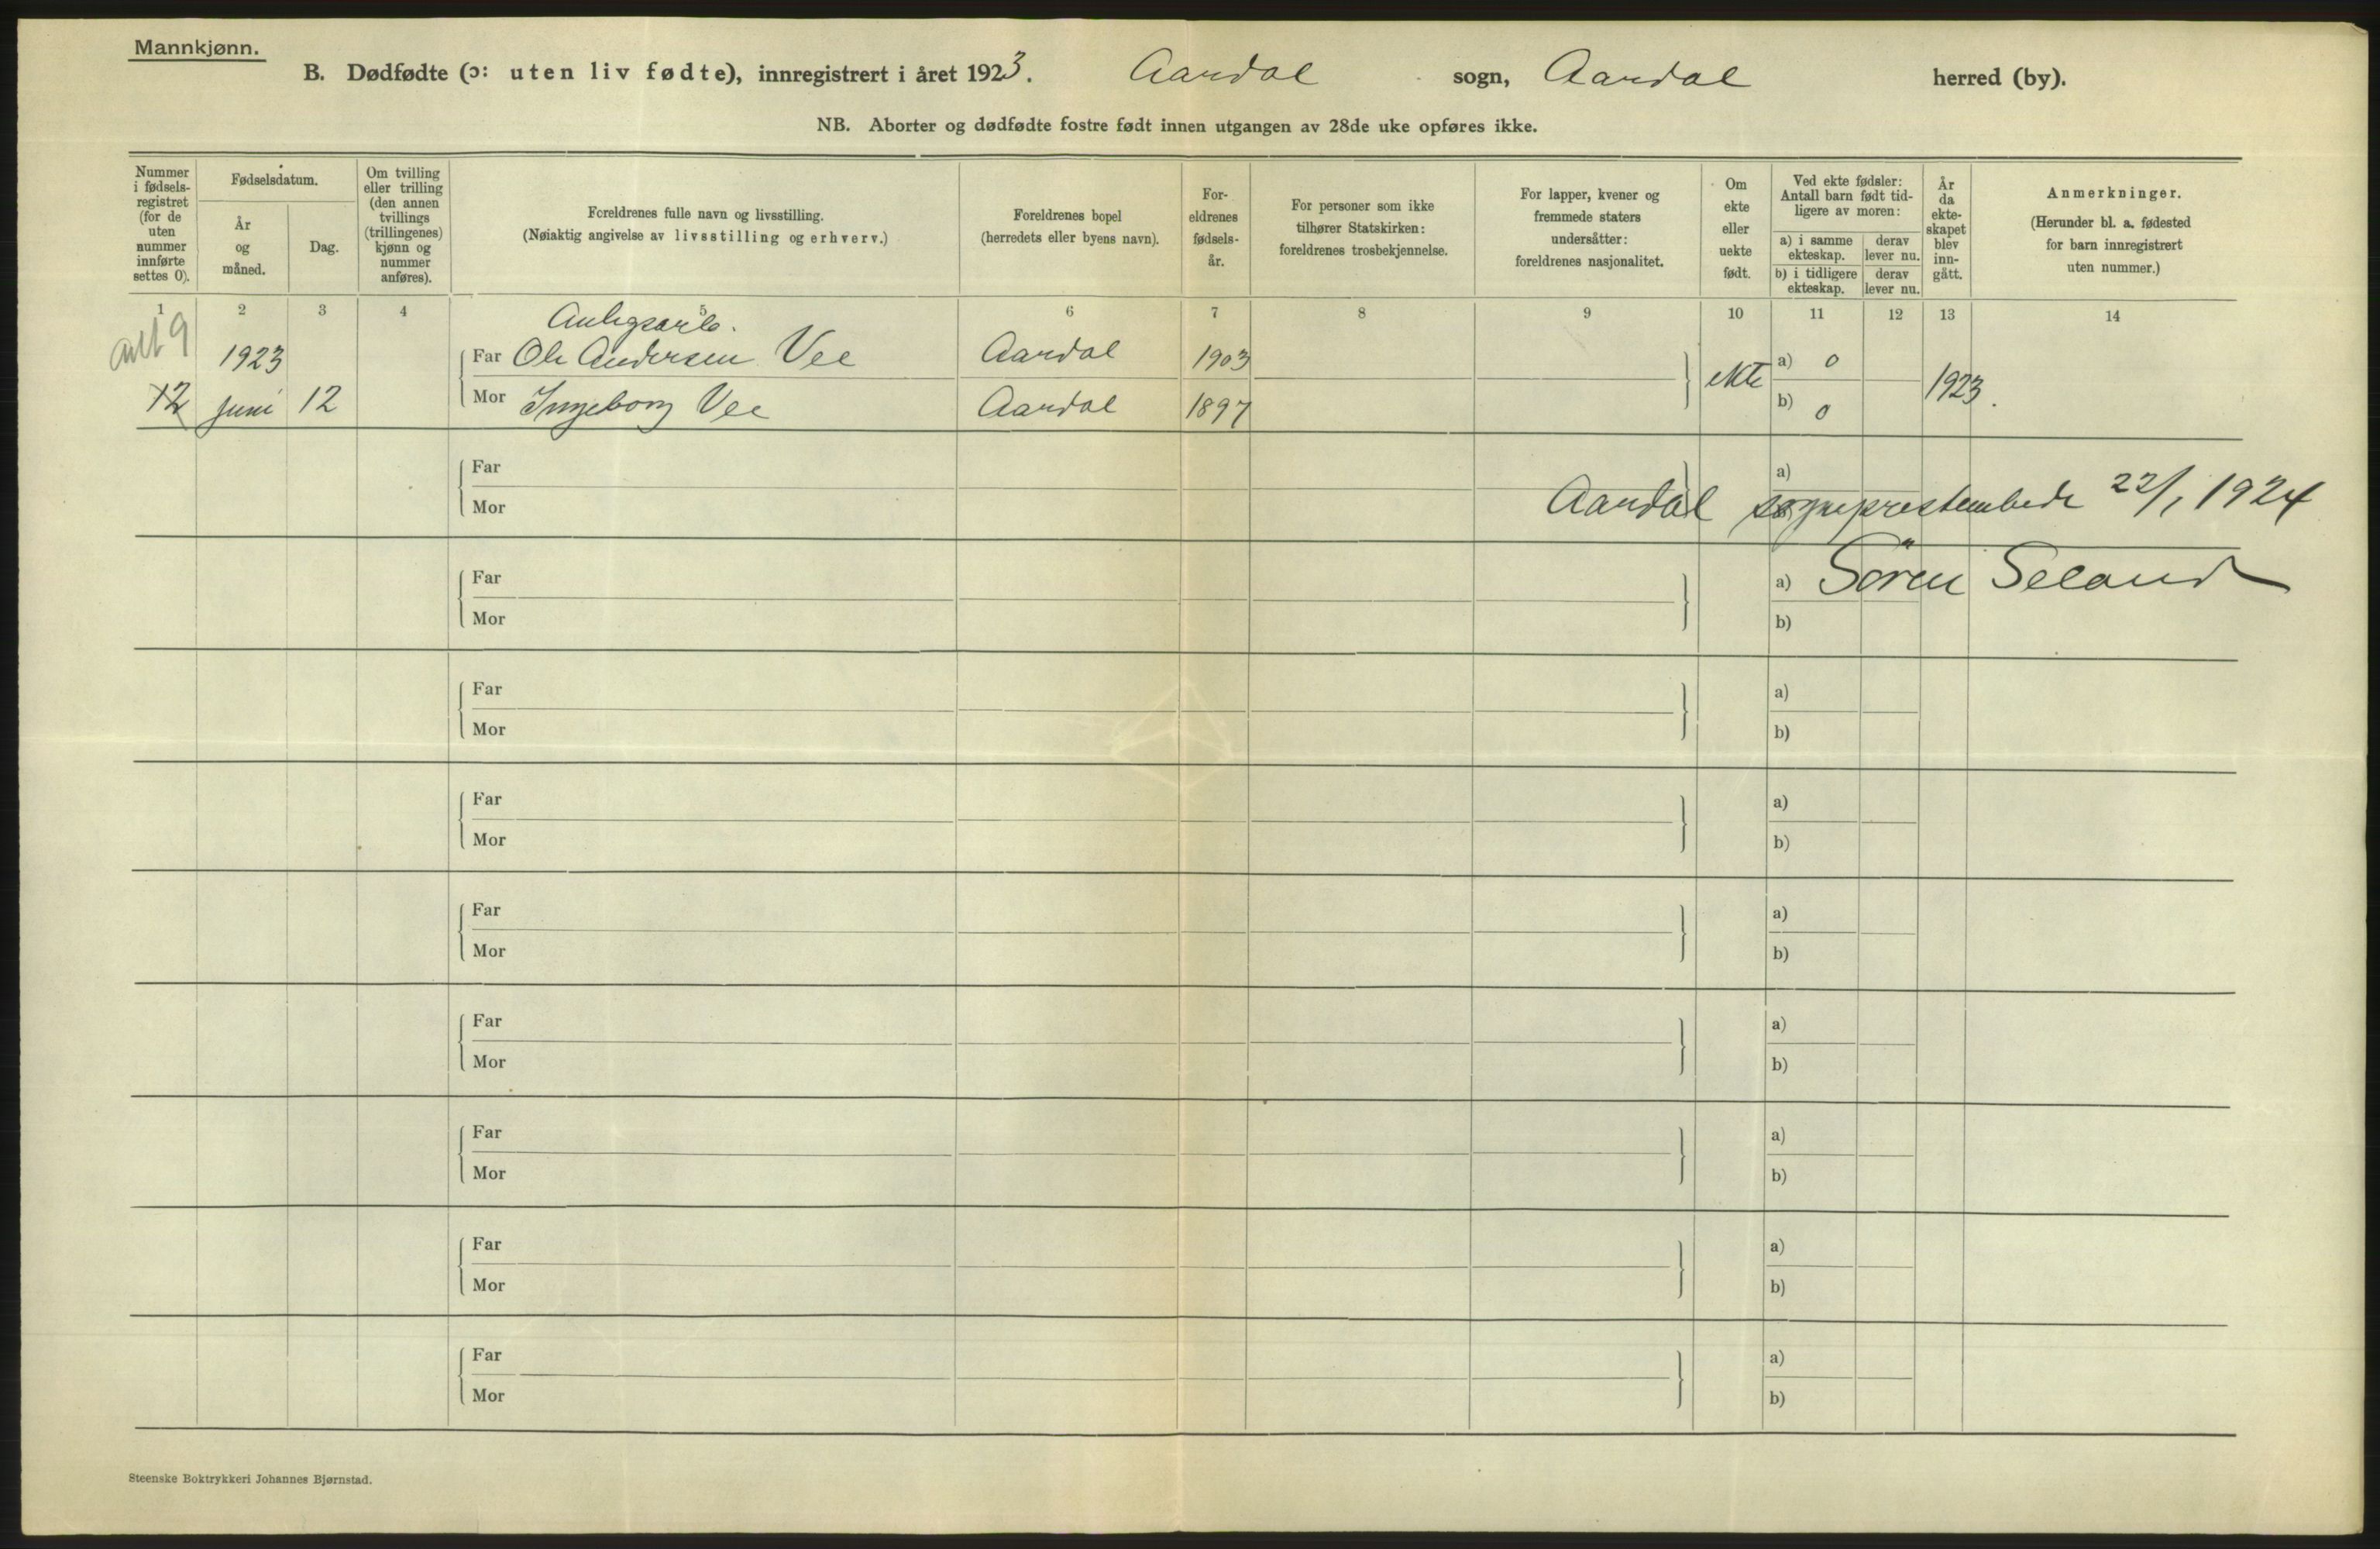 Mannkjønn.
B. Dødfødte (ɔ: uten liv fødte), innregistrert i året 1923. Aardal sogn, Aardal herred (by).
NB. Aborter og dødfødte fostre født innen utgangen av 28de uke opføres ikke.
Nummer i fødsels- registret (for de uten nummer innførte settes 0).
Fødselsdatum.
År og måned.
Dag.
Om tvilling eller trilling (den annen tvillings (trillingenes) kjønn og nummer anføres).
Foreldrenes fulle navn og livsstilling.
(Nøiaktig angivelse av livsstilling og erhverv.)
Foreldrenes bopel
(herredets eller byens navn).
For- eldrenes fødsels- år.
For personer som ikke tilhører Statskirken: foreldrenes trosbekjennelse.
For lapper, kvener og fremmede staters undersåtter: foreldrenes nasjonalitet.
Om ekte eller uekte født.
Ved ekte fødsler: Antall barn født tid- ligere av moren:
a) i samme ekteskap.
derav lever nu.
b) i tidligere ekteskap.
derav lever nu.
År da ekte- skapet blev inn- gått.
Anmerkninger.
(Herunder bl. a. fødested for barn innregistrert uten nummer.)
1 2 3 4 5 6 7 8 9 10 11 12 13 14
9
Anlegsarb.
1923 Far Ole Andersen Vee Aardal 1903 ekte a) 0 1923.
12 juni 12 Mor Ingeborg Vee Aardal 1897 b) 0
Far a)
Mor
Aardal sogneprestembede 22/1 1924
Far a) Sören Seland
Mor b)
Far a)
Mor b)
Far a)
Mor b)
Far a)
Mor b)
Far a)
Mor b)
Far a)
Mor b)
Far a)
Mor b)
Far a)
Mor b)
Steenske Boktrykkeri Johannes Bjørnstad.